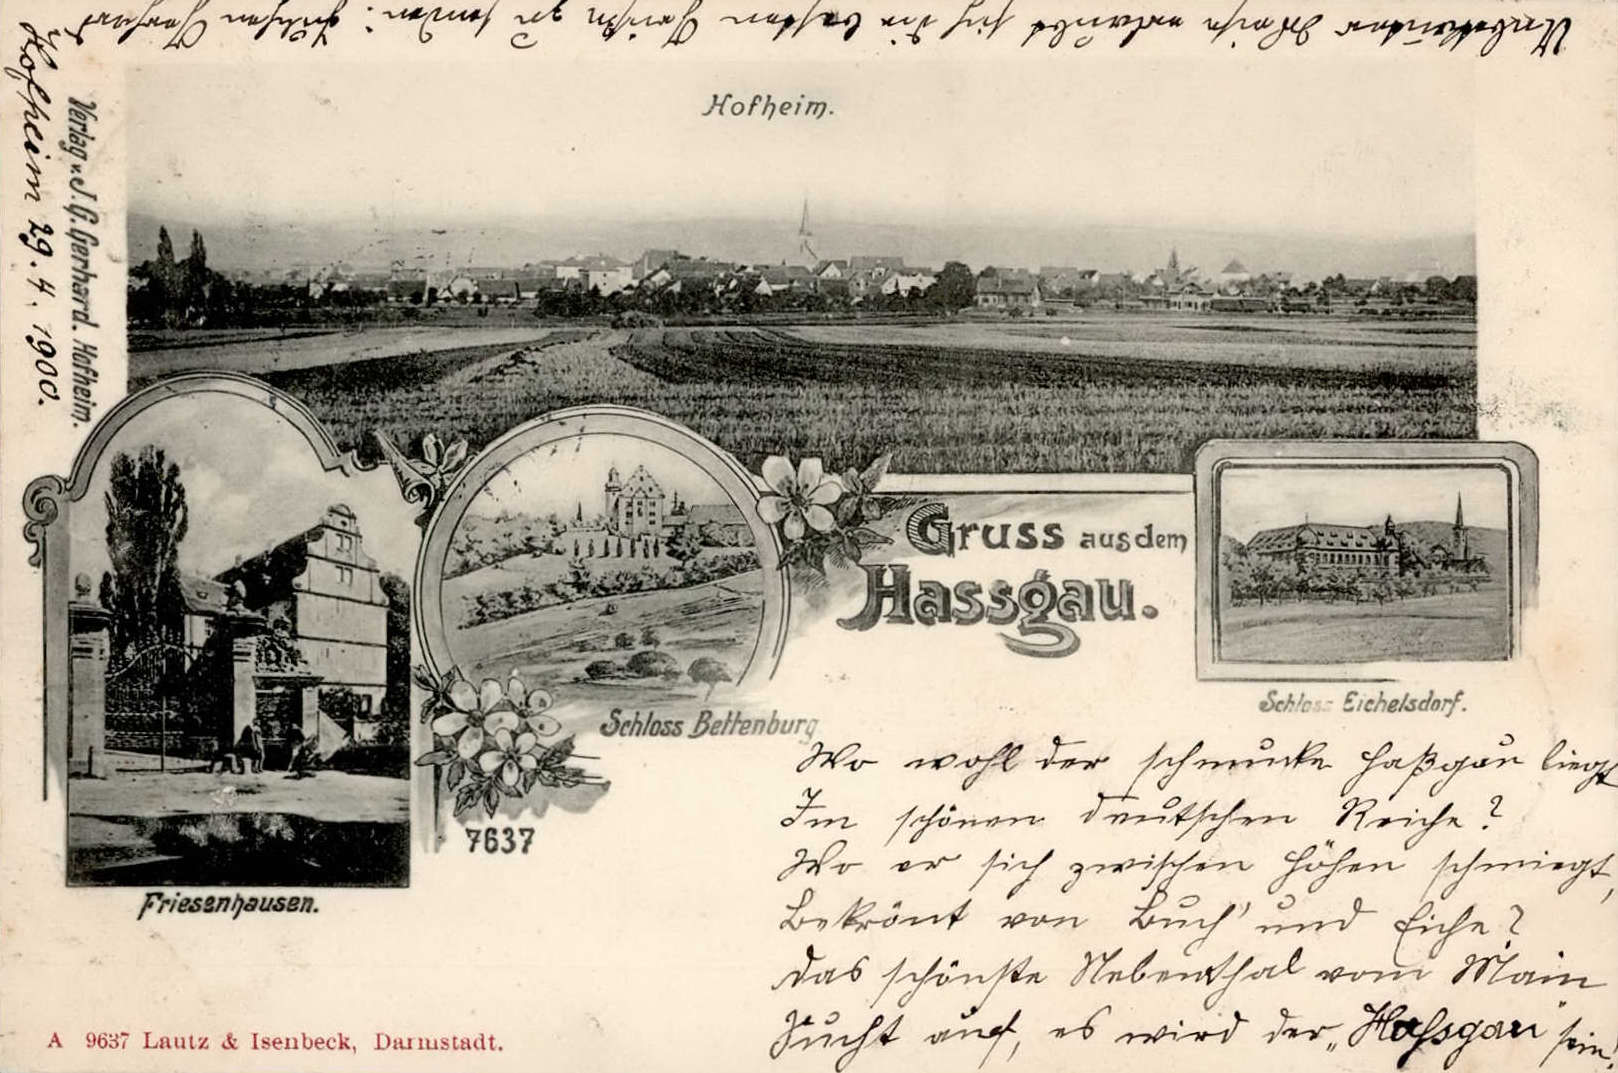 Unbekannter Weise erlaubt sich die besten Grüße zu senden:
Hofheim 29.4.1900.
Verlag v. J. G. Gerhard. Hofheim.
Hofheim.
Gruss aus dem
Hassgau.
Schloss Eichelsdorf.
Schloss Bettenburg
7637
Friesenhausen.
Wo wohl der schmucke Haßgau liegt
Im schönen deutschen Reiche?
Wo er sich zwischen Höhen schmiegt,
Bekrönt von Buch' und Eiche?
Das schönste Nebenthal vom Main
Sucht auf, es wird der „Hassgau" sein!
A 9637 Lautz & Isenbeck, Darmstadt.